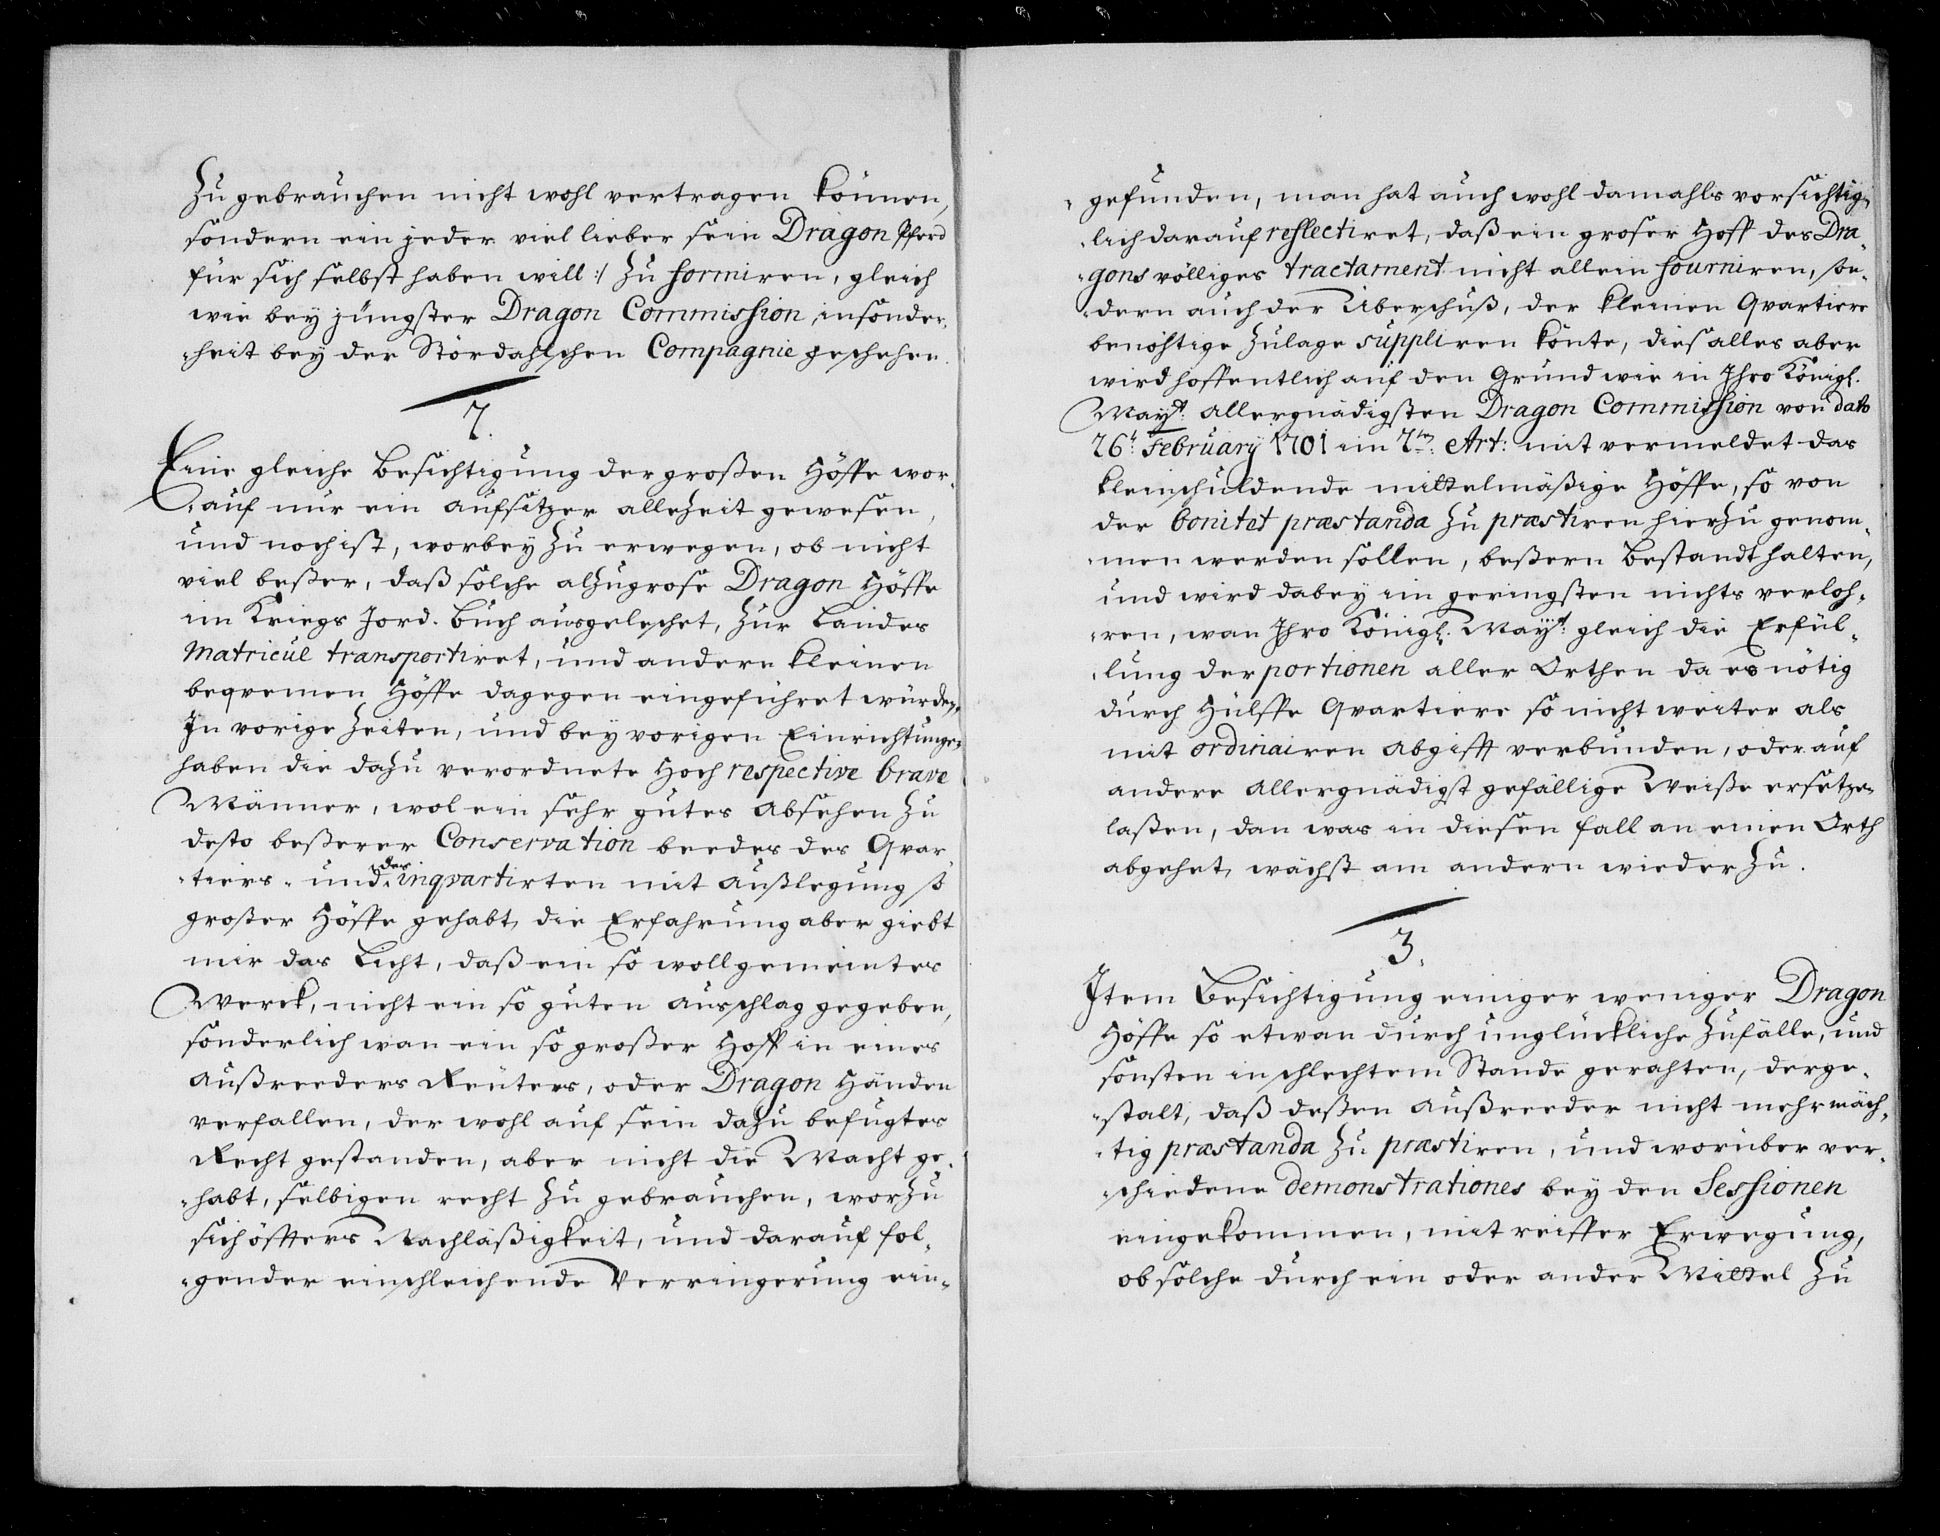 zu gebrauchen nicht wohl vertragen können,
sondern ein jeder viel lieber sein Dragon Pferd
für sich selbst haben will :/ zu formiren, gleich
wie bey jüngster Dragon Commission, insonder-
-heit bey der Stördahlschen Compagnie geschehen.
2.
Eine gleiche Besichtigung der großen Höffe wor-
-auf nur ein aufsitzer allezeit gewesen,
und noch ist, worbey zu erwegen, ob nicht
viel beßer, daß solche alzugrose Dragon Höffe
im Kriegs Jord. Buch ausgeleschet, zur Landes
Matricul transportiret, und andere kleinen
beqvemen Höffe dagegen eingeführet würden,
In vorige Zeiten, und bey vorigen Einrichtungen
haben die dazu verordnete Hoch respective brave
Männer, wol ein sehr gutes absehen zu
desto beßerer Conservation beedes des Qvar-
-tiers- und des inqvartirten mit außlegung so
großer Höffe gehabt, die Erfahrung aber giebt
mir das Licht, daß ein so wollgemeintes
Werck, nicht ein so guten ausschlag gegeben,
sonderlich wan ein so großer Hoff in eines
außreeders Reuters, oder Dragon Händen
verfallen, der wohl auf sein dazu befugtes
Recht gestanden, aber nicht die Macht ge-
-habt, selbigen recht zu gebrauchen, worzu
sich öffters Nachläßigkeit, und darauf fol-
-gender einschleichende Verringerung ein-
-gefunden, man hat auch wohl damahls vorsichtig-
-lich darauf reflectiret, daß ein groser Hoff des Dra-
-gons völliges tractament nicht allein fourniren, son-
-dern auch der Überschuß, der kleinen Qvartiere
benöhtige Zulage suppliren könte, dies alles aber
wird hoffentlich auf den Grund wie in Ihro Königl.
Mayt. allergnädigsten Dragon Commission von dato
26t. February 1701 im 2ten. Art: mit vermeldet das
kleinschuldende mittelmäßige Höffe, so von
der bonitet præstanda zu præstiren hierzu genom-
-men werden sollen, beßern Bestandt halten,
und wird dabey im geringsten nichts verloh-
-ren, wan Ihro Königl. Mayt. gleich die Erfül-
-lung der portionen aller Orthen da es nötig
durch Hülffe Qvartiere so nicht weiter als
mit ordinairen abgifft verbunden, oder auf
andere allergnädigst gefällige Weiße ersetzen
laßen, dan was in diesen fall an einen Orth
abgehet, wächst am andern wieder zu.
3.
Item Besichtigung einiger weniger Dragon
Höffe so etwan durch unglückliche Zufälle, und
sonsten in schlechtem Stande gerahten, derge-
-stalt, daß deßen außreeder nicht mehr mäch-
-tig præstanda zu præstiren, und worüber ver-
-schiedene demonstrationes bey den Sessionen
eingekommen, mit reiffer Erwegung,
ob solche durch ein oder ander Mittel zu